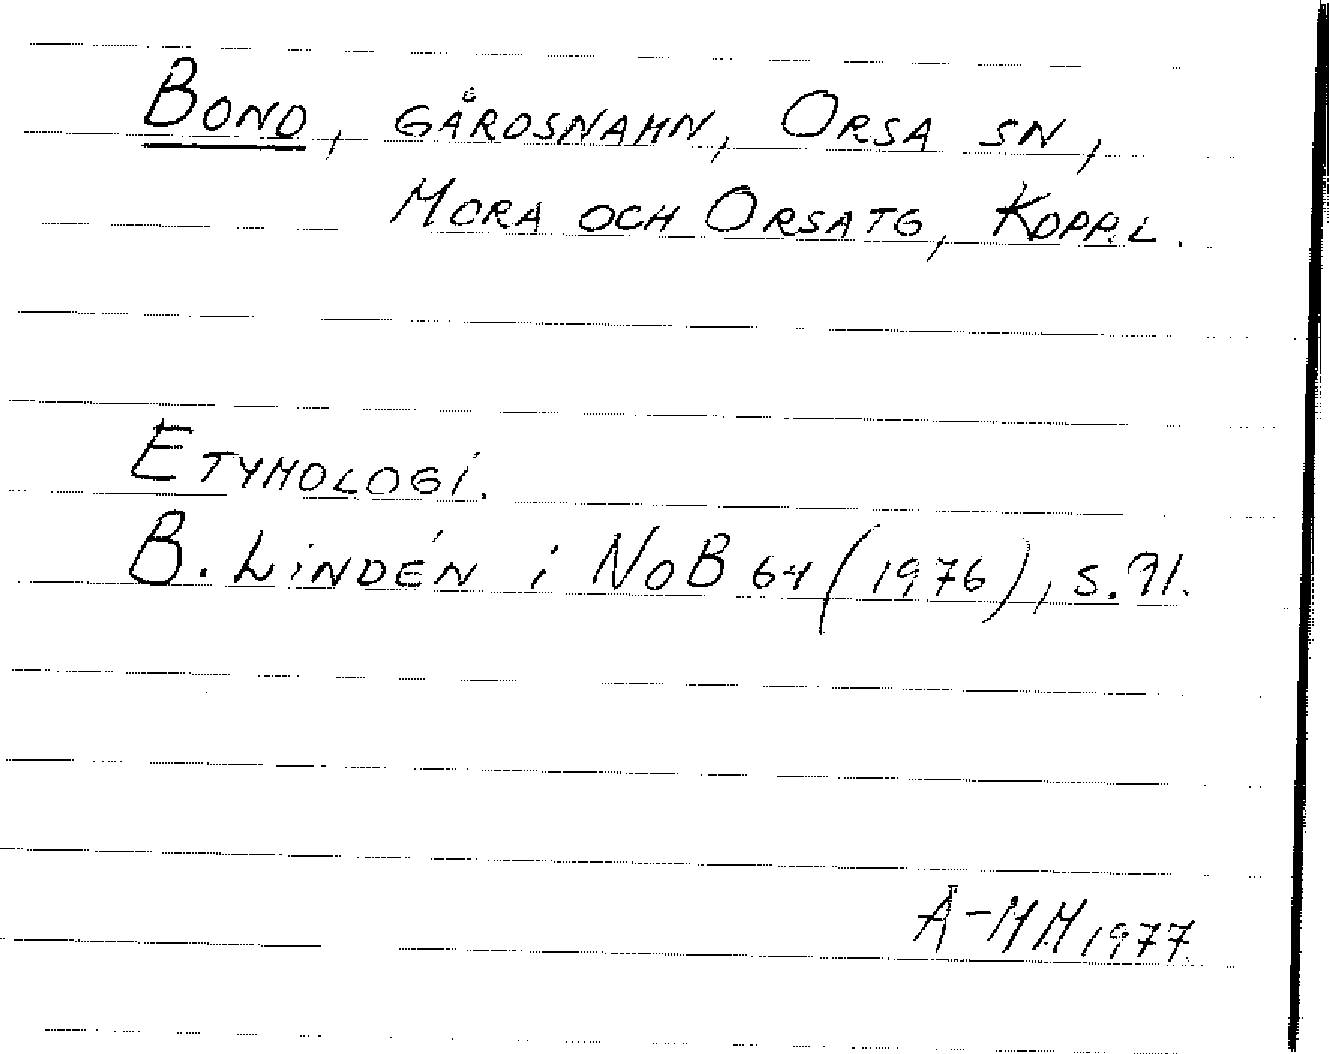 Bond, gårdsnamn, Orsa sn,
Mora och Orsa tg, Kopp.l.
Etymologi.
B. Lindén i NoB 64 (1976), s. 71.
Å-MM 1977.